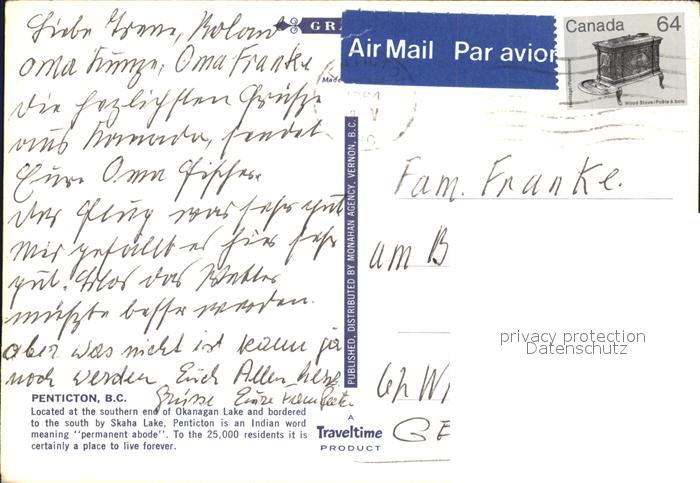 Liebe Irene, Roland
Oma Kunze, Oma Franke
die herzlichsten Grüße
aus Kanada, sendet
Eure Oma Fischer.
Der Flug war sehr gut
Mir gefällt es hier sehr
gut. Blos das Wetter
müßte besser werden.
aber was nicht ist kann ja
noch werden Euch Allen herzl.
Grüsse Eure
PENTICTON, B.C.
Located at the southern end of Okanagan Lake and bordered
to the south by Skaha Lake, Penticton is an Indian word
meaning "permanent abode". To the 25,000 residents it is
certainly a place to live forever.
GRA
Made
PUBLISHED, DISTRIBUTED BY MONAHAN AGENCY, VERNON, B.C.
A
Traveltime
PRODUCT
Air Mail Par avion
Canada 64
Wood Stove/Poêle à bois
Fam. Franke.
am B
privacy protection
Datenschutz
GE